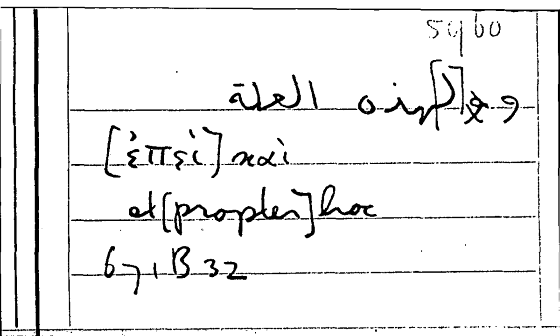 5960
و [ل]هذه العلة
[ἐπεὶ] καὶ
et [propter] hoc
671 B 32